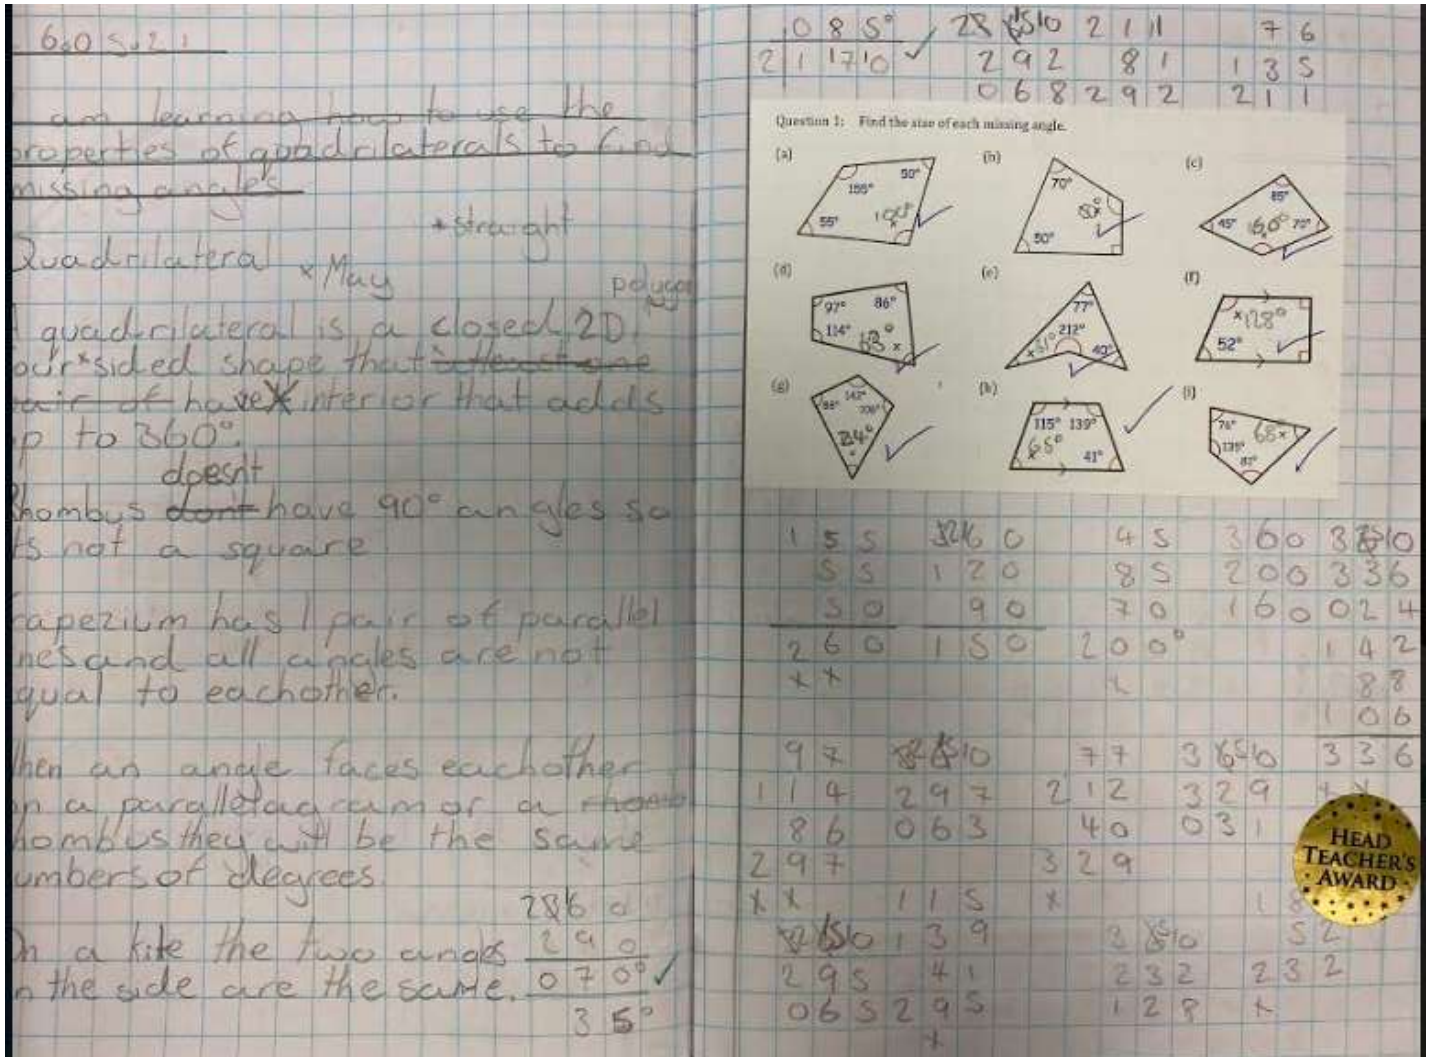 6.05.21
am learning how to use the
properties of quadrilaterals to find
missing angles
*straight
Quadrilateral
*May
polygon
quadrilateral is a closed 2D
our*sided shape that
have interior that adds
p to 360°.
doesnt
Rhombus dont have 90° angles so
ts not a square
rapezium has 1 pair of parallel
nes and all angles are not
qual to eachother.
hen an angle faces eachother
n a parallelagram or a
hombus they will be the same
umbers of degrees.
n a kite the two angles
n the side are the same.
290
070°
35°
085°
2 1 17 10
28 15 10 211 76
292 81 135
068 292 211
Question 1: Find the size of each missing angle.
(a)
155°
50°
55°
100°
(b)
70°
50°
(c)
85°
45°
160°
70°
(d)
97°
86°
114°
63° x
(e)
77°
212°
x 31°
40°
(f)
x128°
52°
(g)
142°
88°
106°
24°
(h)
115° 139°
65°
x
41°
(i)
76°
68 x
135°
81°
155 60 45 360
55 120 85 200 336
50 90 70 160 024
260 150 200° 142
x x 88
106
97 77 336
114 297 212 329
86 063 40 031
297 329
x x 115 x
139 52
295 41 232 232
065 295 128 x
x
HEAD
TEACHER'S
AWARD